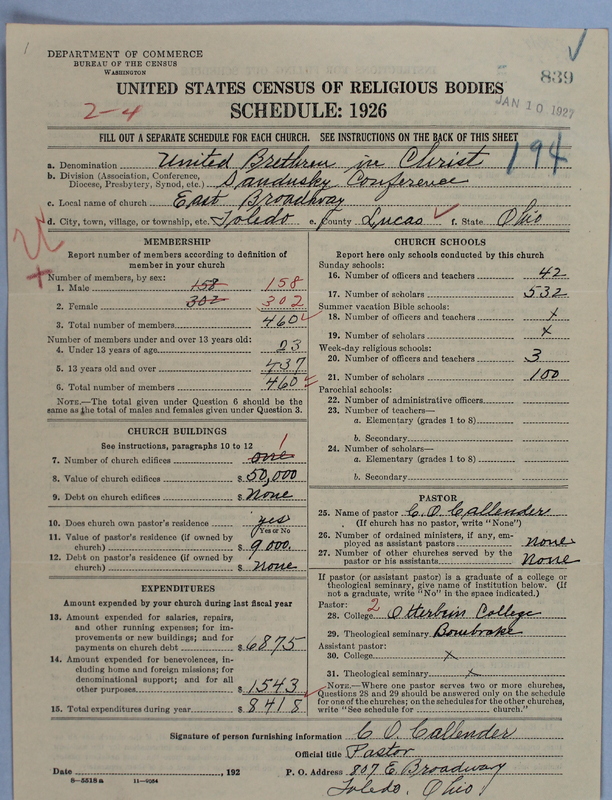 DEPARTMENT OF COMMERCE
BUREAU OF THE CENSUS
WASHINGTON
839
JAN 10 1927
UNITED STATES CENSUS OF RELIGIOUS BODIES
SCHEDULE: 1926
FILL OUT A SEPARATE SCHEDULE FOR EACH CHURCH. SEE INSTRUCTIONS ON THE BACK OF THIS SHEET
194
a. Denomination United Brethren in Christ
b. Division (Association, Conference, Diocese, Presbytery, Synod, etc.) Sandusky Conference
c. Local name of church East Broadway
d. City, town, village, or township, etc. Toledo e. County Lucas f. State Ohio
2-4
MEMBERSHIP
Report number of members according to definition of
member in your church
Number of members, by sex:
1. Male 158 158
2. Female 302 302
3. Total number of members 460
Number of members under and over 13 years old:
4. Under 13 years of age 23
5. 13 years old and over 437
6. Total number of members 460
NOTE.—The total given under Question 6 should be
same as the total of males and females given under Question 3.
CHURCH BUILDINGS
See instructions, paragraphs 10 to 12
7. Number of church edifices one 1
8. Value of church edifices $ 50,000
9. Debt on church edifices $ none
10. Does church own pastor's residence yes
Yes or No
11. Value of pastor's residence (if owned by
church) $ 9,000.
12. Debt on pastor's residence (if owned by
church) $ none
EXPENDITURES
Amount expended by your church during last fiscal year
13. Amount expended for salaries, repairs,
and other running expenses; for im-
provements or new buildings; and for
payments on church debt $ 6875
14. Amount expended for benevolences, in-
cluding home and foreign missions; for
denominational support; and for all
other purposes $ 1543
15. Total expenditures during year $ 8418
CHURCH SCHOOLS
Report here only schools conducted by this church
Sunday schools:
16. Number of officers and teachers 42
17. Number of scholars 532
Summer vacation Bible schools:
18. Number of officers and teachers x
19. Number of scholars x
Week-day religious schools:
20. Number of officers and teachers 3
21. Number of scholars 100
Parochial schools:
22. Number of administrative officers
23. Number of teachers—
a. Elementary (grades 1 to 8)
b. Secondary
24. Number of scholars—
a. Elementary (grades 1 to 8)
b. Secondary
PASTOR
25. Name of pastor C. O. Callender
(If church has no pastor, write "None")
26. Number of ordained ministers, if any, em-
ployed as assistant pastors none
27. Number of other churches served by the
pastor or his assistants None
If pastor (or assistant pastor) is a graduate of a college or
theological seminary, give name of institution below. (If
not a graduate, write "No" in the space indicated.)
Pastor:
28. College 2 Otterbein College
29. Theological seminary Bonebrake
Assistant pastor:
30. College x
31. Theological seminary x
NOTE.—Where one pastor serves two or more churches,
Questions 28 and 29 should be answered only on the schedule
for one of the churches; on the schedules for the other churches,
write "See schedule for church."
Signature of person furnishing information C. O. Callender
Official title Pastor
Date , 192 P. O. Address 807 E. Broadway
8—5518 a 11—9064 Toledo, Ohio.